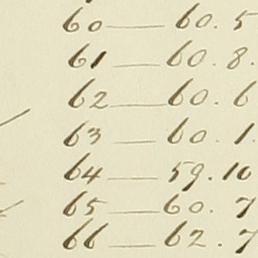 60 — 60. 5
61 — 60. 8.
62 — 60. 6
63 — 60. 1.
64 — 59. 10
65 — 60. 7
66 — 62. 7